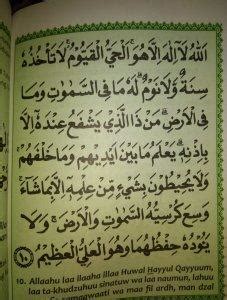 اَللّٰهُ لَآ اِلٰهَ اِلَّا هُوَ الْحَيُّ الْقَيُّوْمُ ۚ لَا تَأْخُذُهُ
سِنَةٌ وَّلَا نَوْمٌ ۗ لَهُ مَا فِى السَّمٰوٰتِ وَمَا
فِى الْاَرْضِ ۗ مَنْ ذَا الَّذِيْ يَشْفَعُ عِنْدَهُ اِلَّا
بِاِذْنِهِ ۗ يَعْلَمُ مَا بَيْنَ اَيْدِيْهِمْ وَمَا خَلْفَهُمْ
وَلَا يُحِيْطُوْنَ بِشَيْءٍ مِّنْ عِلْمِهِ اِلَّا بِمَا شَآءَ ۚ
وَسِعَ كُرْسِيُّهُ السَّمٰوٰتِ وَالْاَرْضَ ۚ وَلَا
يَئُوْدُهُ حِفْظُهُمَا وَهُوَ الْعَلِيُّ الْعَظِيْمُ ١٠
10. Allaahu laa ilaaha illaa Huwal Hayyul Qayyuum,
laa ta-khudzuhuu sinatuw wa laa naumun, lahuu
maa fis samaawaati wa maa fil ardh, man dzal